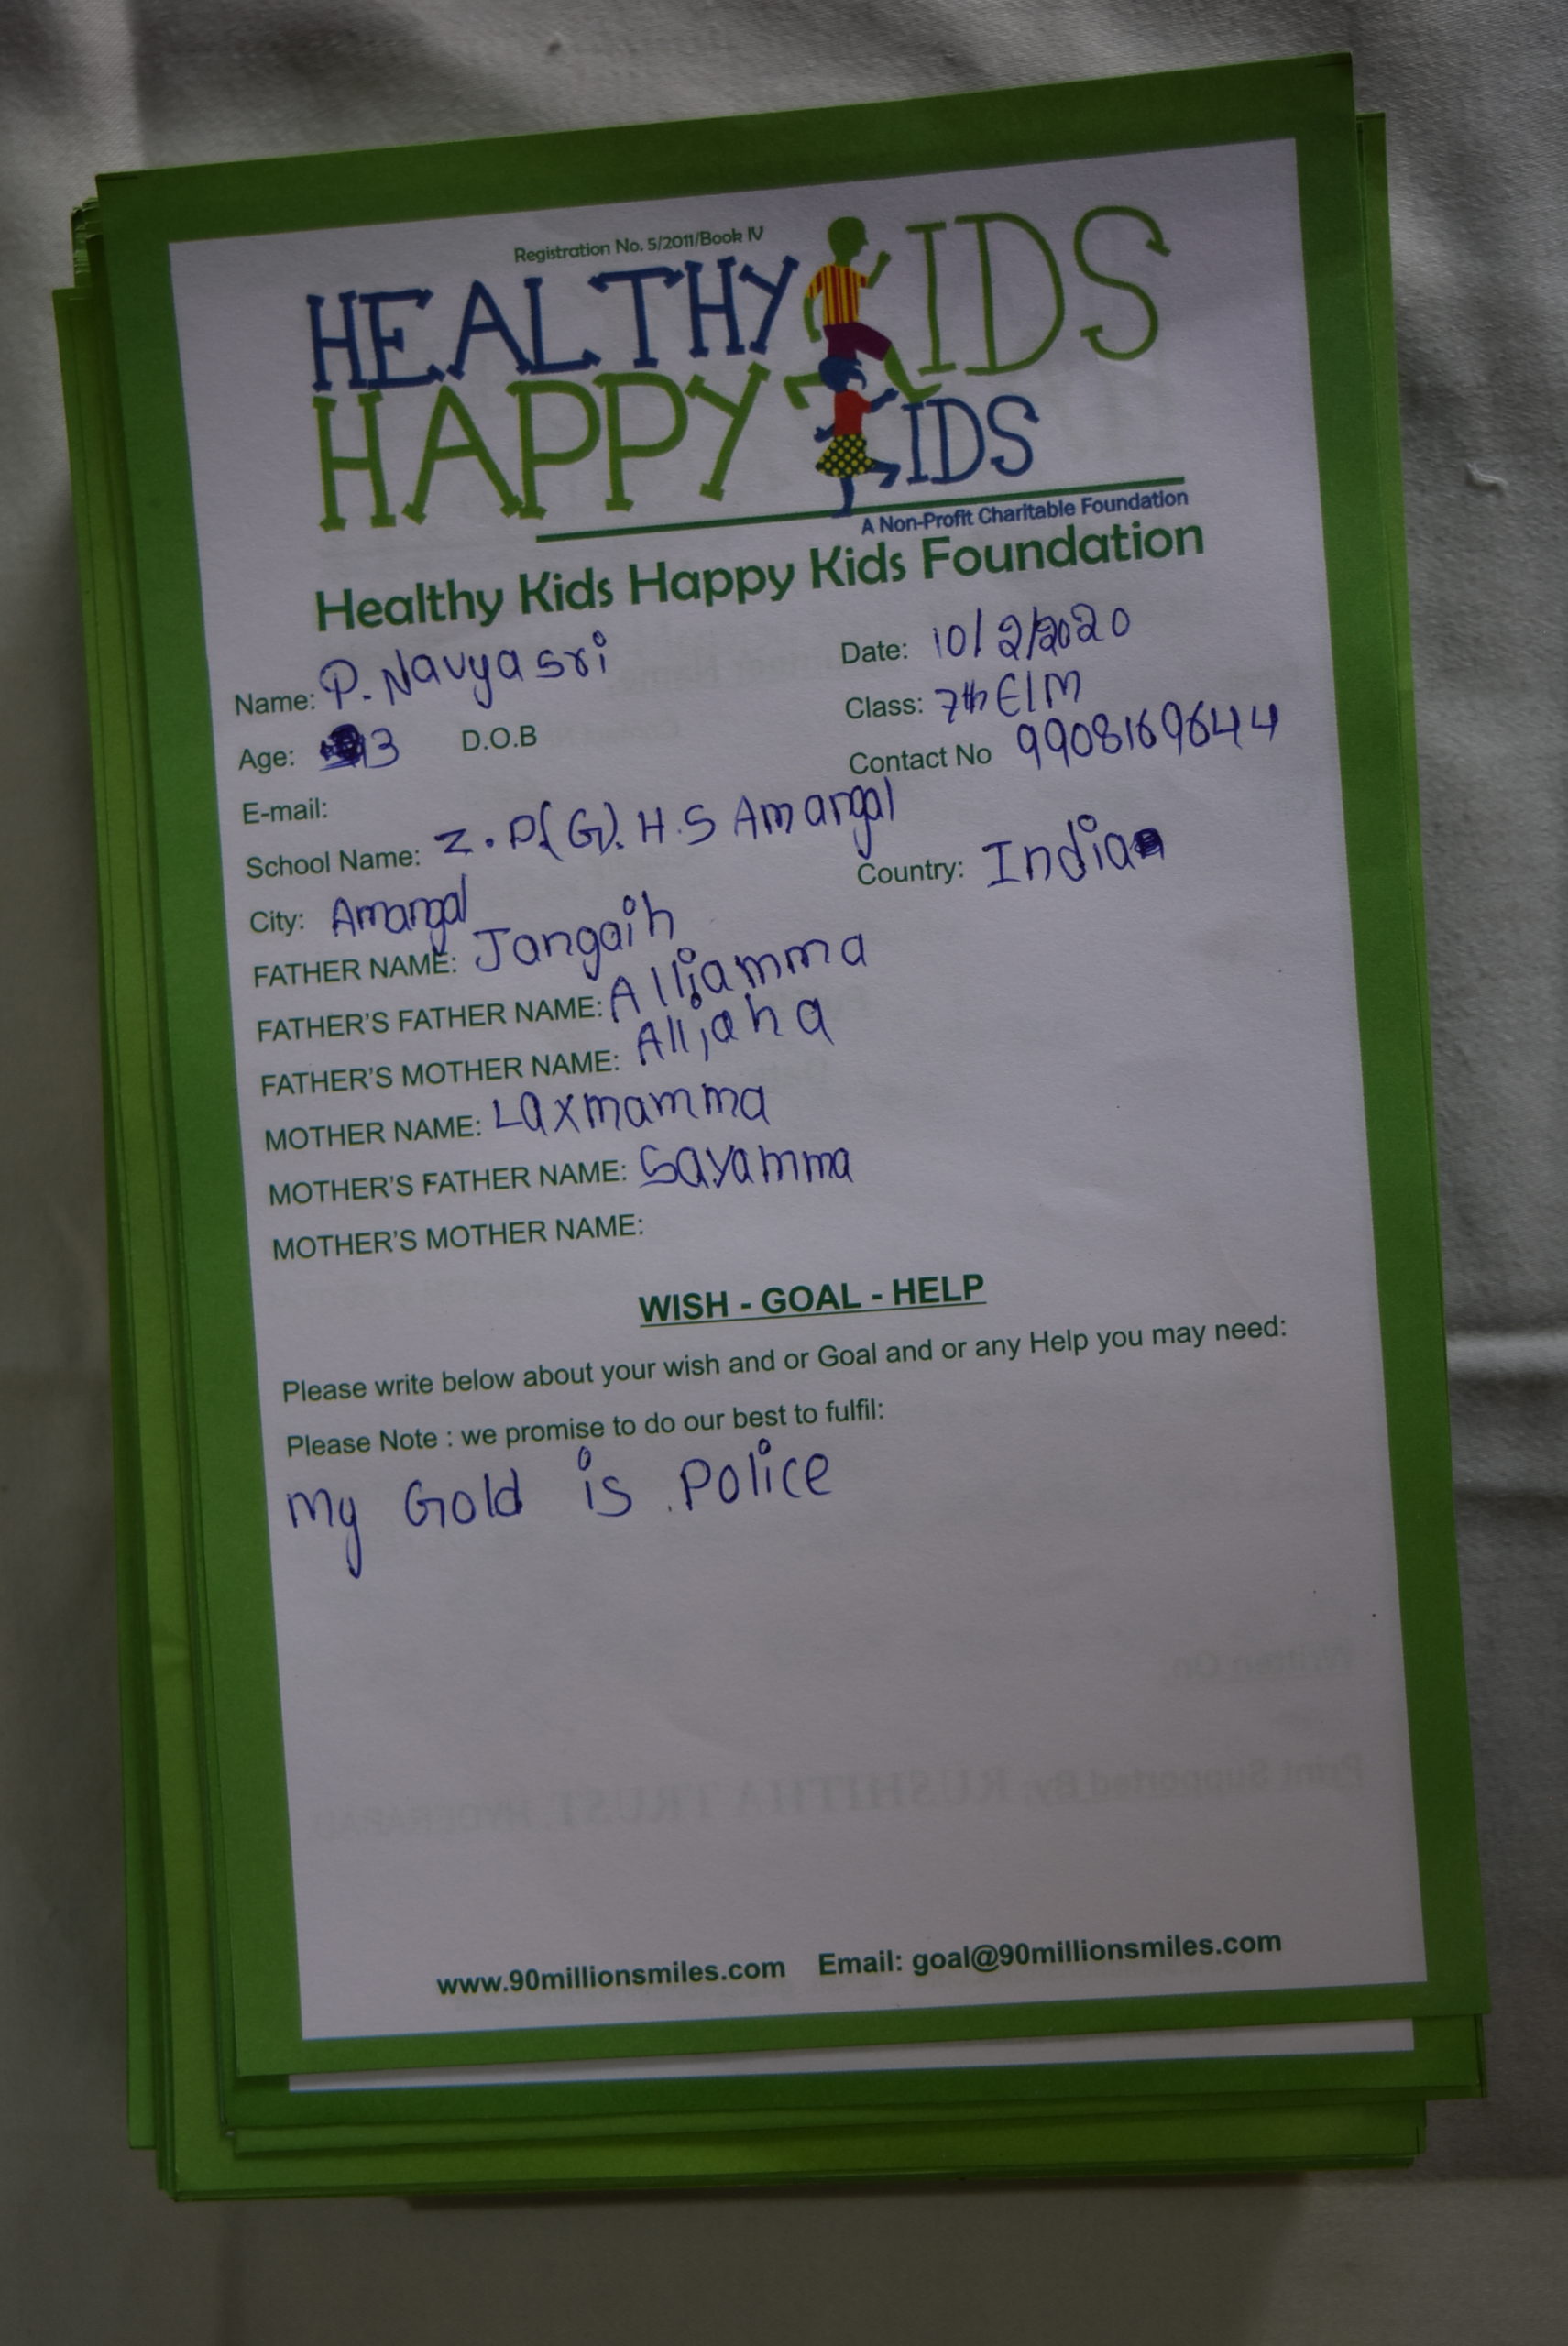 Registration No. 5/2011/Book IV
HEALTHY KIDS
HAPPY KIDS
A Non-Profit Charitable Foundation
Healthy Kids Happy Kids Foundation
Name: P. Navyasri Date: 10/2/2020
Age: 13 D.O.B Class: 7th E/M
E-mail: Contact No 9908169644
School Name: Z.P.(G).H.S Amangal
City: Amangal Country: India
FATHER NAME: Jangaih
FATHER'S FATHER NAME: Alliamma
FATHER'S MOTHER NAME: Alliaha
MOTHER NAME: Laxmamma
MOTHER'S FATHER NAME: Sayamma
MOTHER'S MOTHER NAME:
WISH - GOAL - HELP
Please write below about your wish and or Goal and or any Help you may need:
Please Note : we promise to do our best to fulfil:
My Gold is Police
Written On
Print Supported By: RUSHITHA TRUST, HYDERABAD
www.90millionsmiles.com Email: goal@90millionsmiles.com